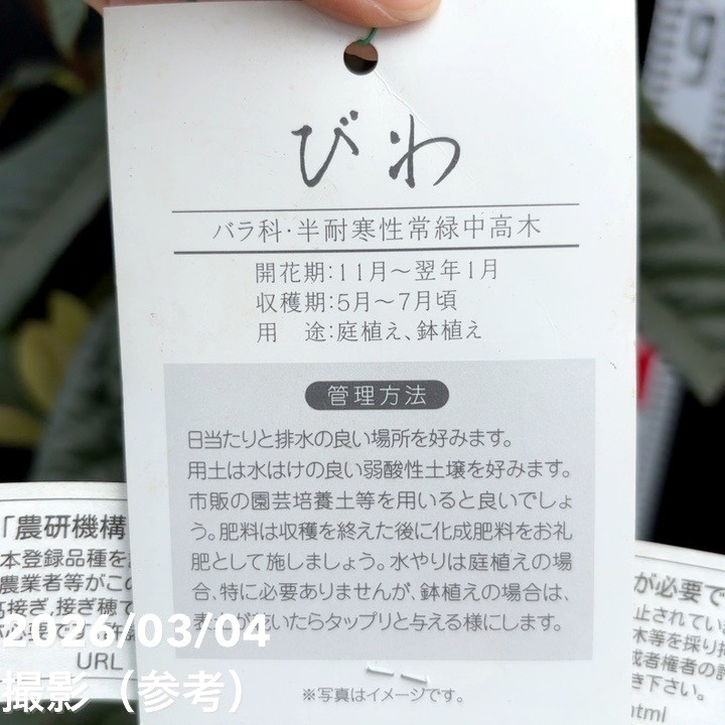 びわ
バラ科・半耐寒性常緑中高木
開花期:11月～翌年1月
収穫期:5月～7月頃
用　途:庭植え、鉢植え
管理方法
日当たりと排水の良い場所を好みます。
用土は水はけの良い弱酸性土壌を好みます。
市販の園芸培養土等を用いると良いでしょ
う。肥料は収穫を終えた後に化成肥料をお礼
肥として施しましょう。水やりは庭植えの場
合、特に必要ありませんが、鉢植えの場合は、
が乾いたらタップリと与える様にします。
※写真はイメージです。
「農研機構
本登録品種を
農業者等がこ
高接ぎ,接ぎ穂で
が必要です
URL
が必要で
止されてい
木等を採り
成者権者の
き下さい。
html
2026/03/04
撮影（参考）